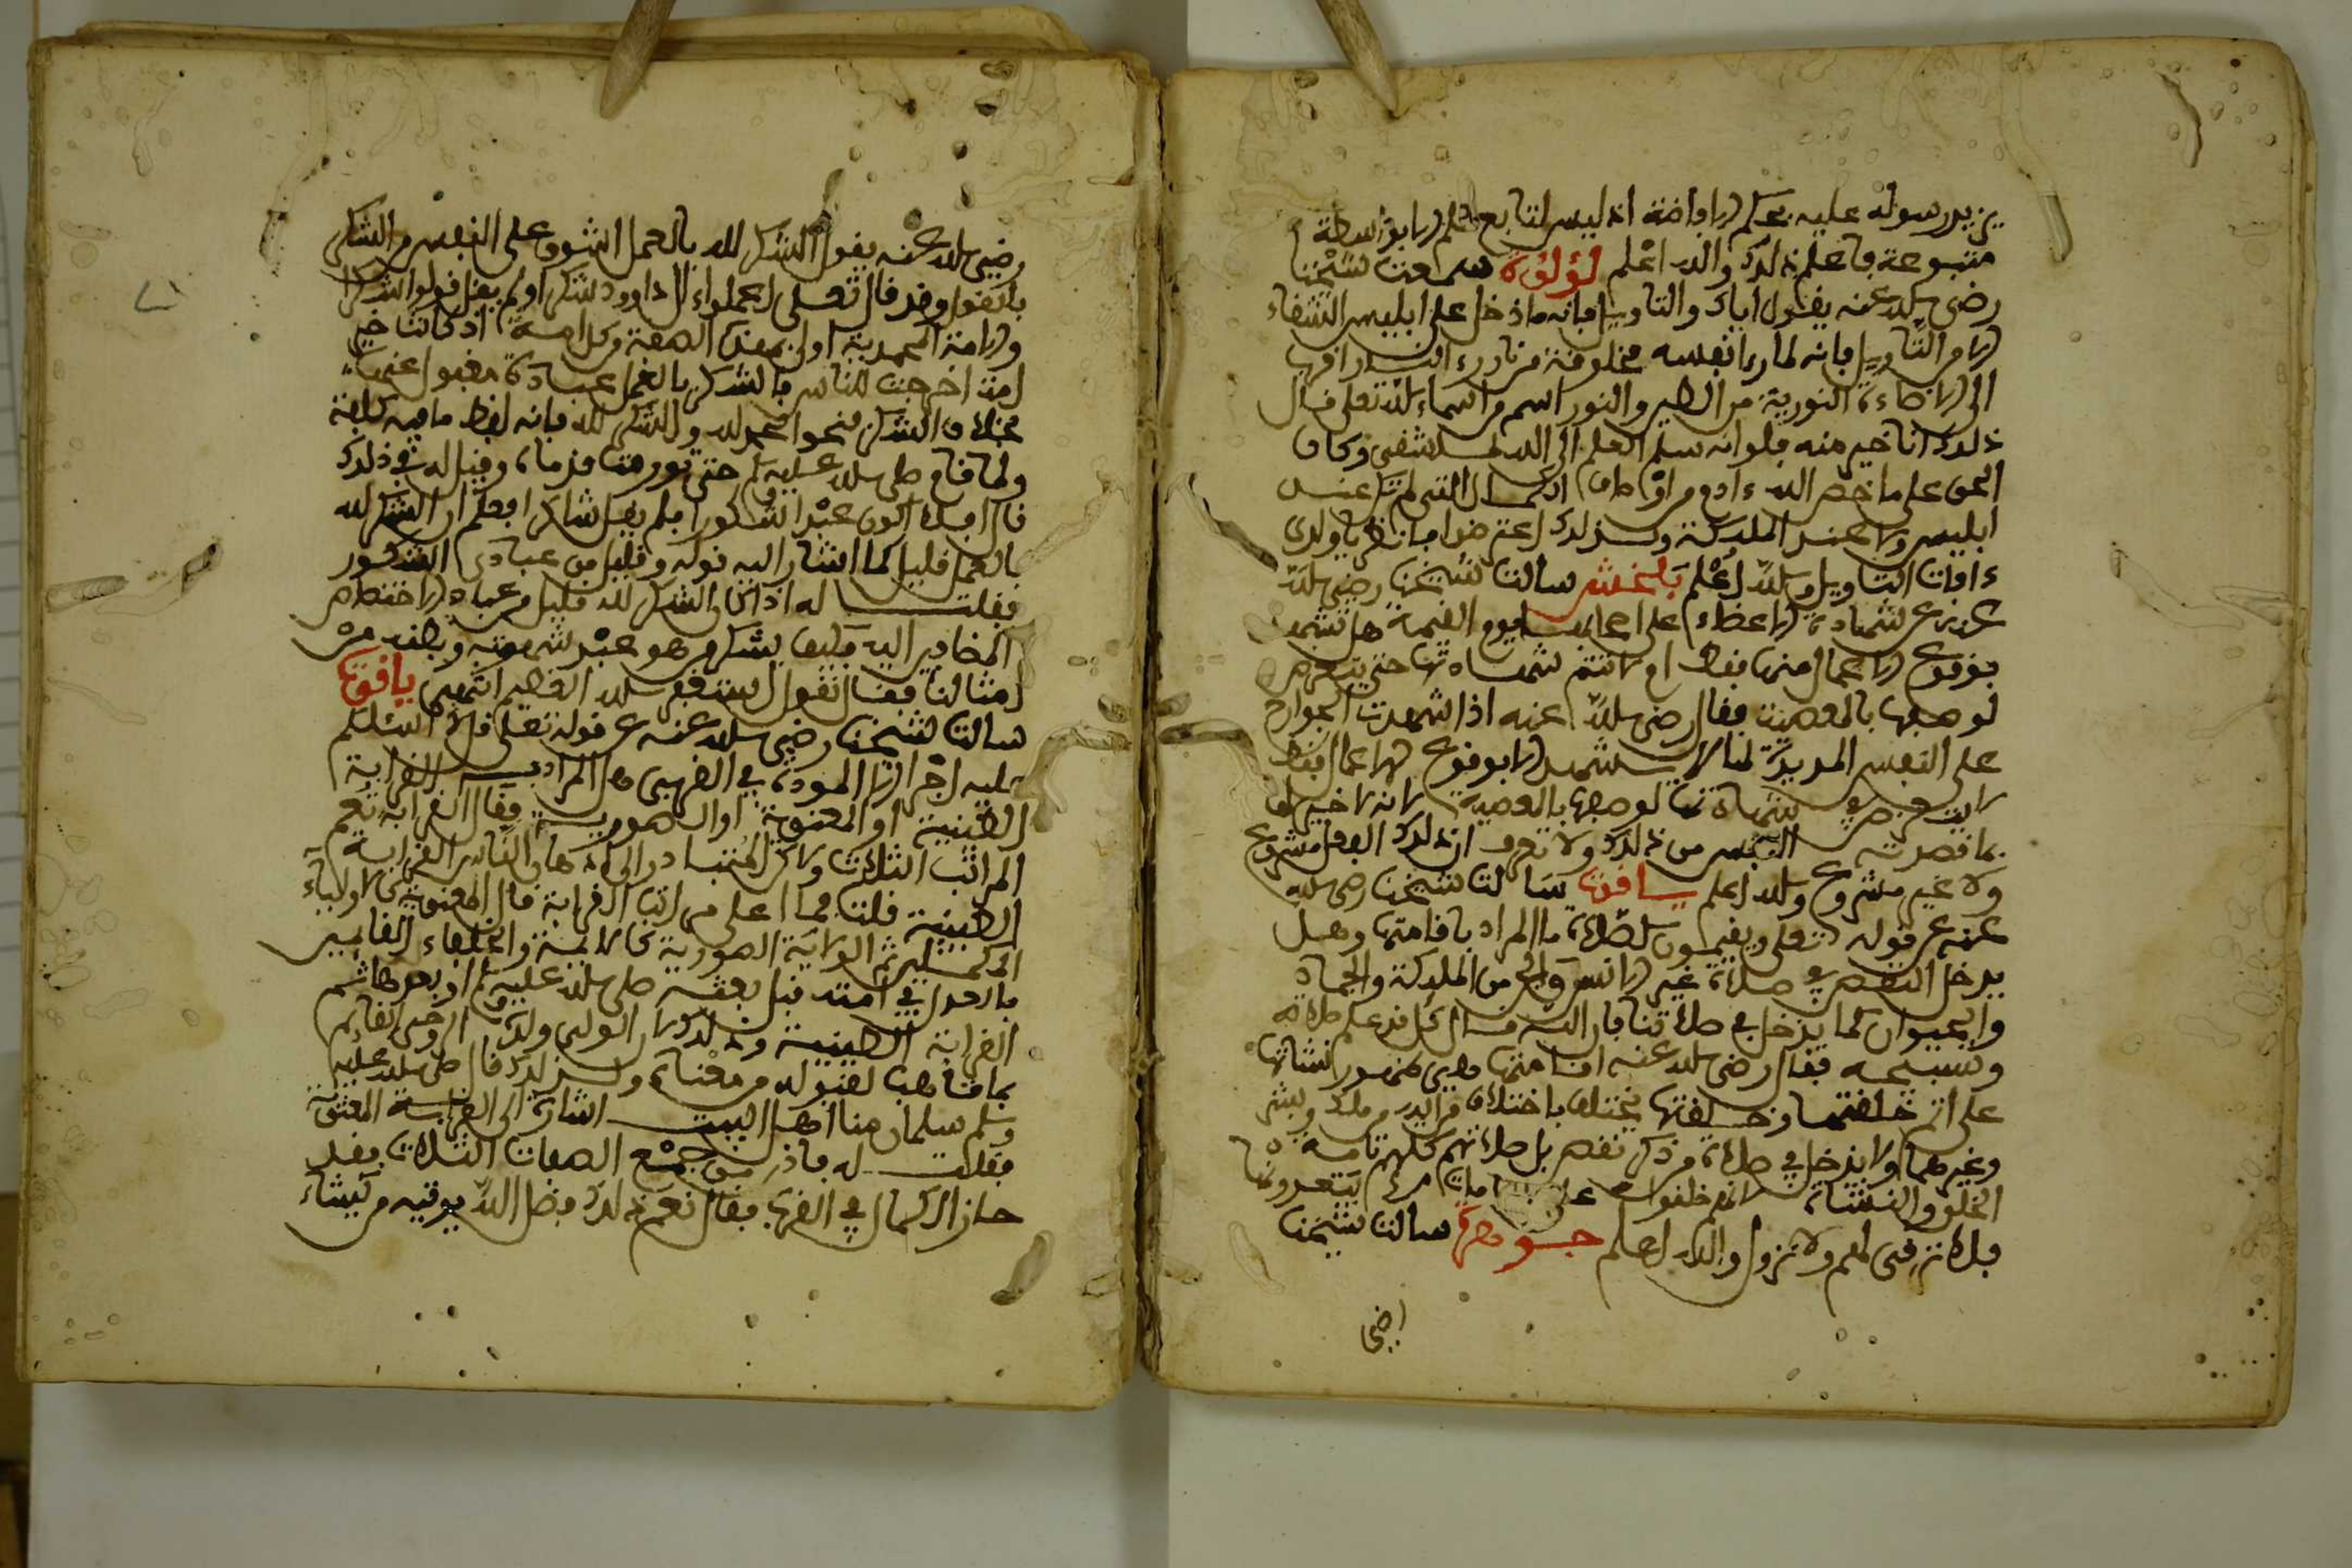 يزيد رسوله عليه بحكم الإفاضة إذ ليس لتابع علم إلا بواسطة
متبوعة فاعلم ذلك والله اعلم لؤلؤة سمعت شيخنا
رضي الله عنه يقول اياك والتاويل فإنه ما دخل على ابليس الشقاء
الا من التاويل فإنه لما رأى نفسه مخلوقة من نار ورأى النار اقرب
الى الإضاءة النورية من الطين والنور اسم من اسماء الله تعلى قال
ذلك انا خير منه فلو انه سلم العلم الى الله لما شقى وكان
الحق على ما خص الله ءادم من اوصاف الكمال التي لم تكن عند
ابليس ولا عند الملئكة ولذلك اعترضوا فانظر يا ولدي
ءافات التاويل والله اعلم بلخش سألت شيخنا رضي الله
عنه عن شهادة الاعضاء على اصحابها يوم القيمة هل تشهد
بوقوع الاعمال منها فقط او لا تتم شهادتها حتى يتعرض
لوصفها بالمعصية فقال رضي الله عنه اذا شهدت الجوارح
على النفس المدبرة لها لا تشهد الا بوقوع الاعمال فقط
لا يتعرض في شهادتها لوصفها بالمعصية لانه لا خبر لها
بما قصدته النفس من ذلك ولا تعرف ان ذلك الفعل مشروع
ولا غير مشروع والله اعلم ياقوت سألت شيخنا رضي الله
عنه عن قوله تعلى ويقيمون الصلاة ما المراد بإقامتها وهل
يدخل النقص في صلاة غير الانس والجن من الملئكة والجماد
والحيوان كما يدخل في صلاتنا فإن الله قال كل قد علم صلاته
وتسبيحه فقال رضي الله عنه اقامتها هي ظهور نشأتها
على اتم خلقتها وخلقتها تختلف باختلاف من ملك وبشر
وغيرهما ولا يدخل في صلاة من ذكر نقص بل صلاتهم كلهم تامة
الخلق والنشأة لانهم خلقوا على يتعدونها
فلا ترقى لهم ولا نزول والله اعلم جوهرة سالت شيخنا
رضي
رضي الله عنه يقول الشكر لله بالعمل اشق على النفس من الشكر
بالقول وقد قال تعلى اعملوا ءال داوود شكرا ولم يقل قولوا شكرا
والامة المحمدية اولى بهذه الصفة من كل امة اذ كانت خير
امة اخرجت للناس فالشكر بالعمل عبادة معقول عنها
بخلاف الشكر نحو الحمد لله والشكر لله فإنه لفظ ما فيه كلفة
ولما قام صلى الله عليه وسلم حتى تورمت قدماه وقيل له في ذلك
قال افلا اكون عبدا شكورا فلم يقل شاكرا فعلم ان الشكر لله
بالعمل قليل كما اشار اليه قوله وقليل من عبادي الشكور
فقلت له اذا كان الشكر لله قليل من عباده الاختصاص
المضافين اليه فكيف يشكره من هو عبد شهوته وبطنه من
امثالنا فقال تقول استغفر الله العظيم انتهى ياقوت
سألت شيخنا رضي الله عنه عن قوله تعلى قل لا اسئلكم
عليه اجرا الا المودة في القربى هل المراد به القرابة
الطينية او المعنوية او الصورية فقال القرابة تعم
المراتب الثلاث ولاكن المتبادر الى اذهان الناس القرابة
الطينية قلت فما اعلى مراتب القرابة قال المعنوية كالاولياء
المكملين ثم القرابة الصورية كالائمة والخلفاء القائمين
بالعدل في امته قبل بعثته صلى الله عليه وسلم او بعدها ثم
القرابة الطينية وذلك لان الولي ولده الروحي القائم
بما تأهب لقبوله من معناه ولذلك قال صلى الله عليه
وسلم سلمان منا اهل البيت اشارة الى القرابة المعنوية
فقلت له فاذن من جمع الصفات الثلاث فقد
حاز الكمال في القرب فقال نعم ذلك فضل الله يوتيه من يشاء